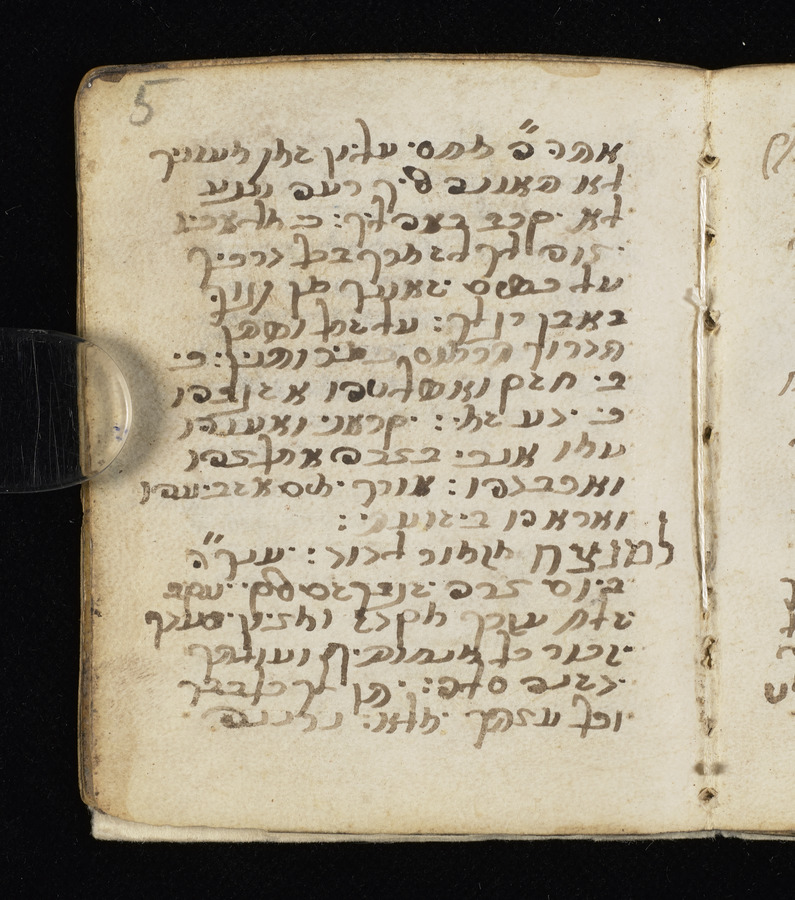 אתה ה" מחסי עליון שמת מעוניך
לא תאונה אליך רעה ונגע
לא יקרב באהליך: כי מלאכיו
יצוה לך לשמרך בכל דרכיך
על כפים ישאונך פן תגוף
באבן רגליך: על שחל ופתן
תדרוך תרמוס כפיר ותנין: כי
בי חשק ואפלטהו אשגבהו
כי ידע שמי: יקראני ואענהו
עמו אנכי בצרה אחלצהו
ואכבדהו: אורך ימים אשביעהו
ואראהו בישועתי:
למנצח מזמור לדוד: יענך ה"
ביום צרה ישגבך שם יעקב
ישלח עזרך מקדש ומציון יסעדך
יזכור כל מנחותיך ועולתך
ידשנה סלה: יתן לך כלבבך
וכל עצתך ימלא: נרננה
5